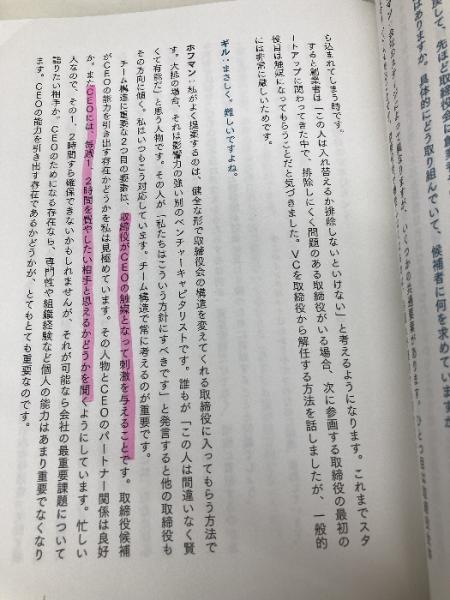 も込まれてしまう時です。
すると創業者は「この人は入れ替えるか排除しないといけない」と考えるようになります。これまでスタ
ートアップに関わってきた中で、排除しにくく問題のある取締役がいる場合、次に参画する取締役の最初の
役目は触媒になってもらうことだと気づきました。VCを取締役から解任する方法を話しましたが、一般的
には非常に難しいためです。
ギル:まさしく。難しいですよね。
ホフマン:私がよく提案するのは、健全な形で取締役会の構造を変えてくれる取締役に入ってもらう方法で
す。大抵の場合、それは影響力の強い別のベンチャーキャピタリストです。誰もが「この人は間違いなく賢
くて有能だ」と思う人物です。その人が「私たちはこういう方針にすべきです」と発言すると他の取締役も
その方向に傾く。私はいつもこう対応しています。チーム構造で常に考えるのが重要です。
チーム構造に重要な2つ目の要素は、取締役がCEOの触媒となって刺激を与えることです。取締役候補
がCEOの能力を引き出す存在かどうかを私は見極めています。その人物とCEOのパートナー関係は良好
か。またCEOには、毎週1、2時間を費やしたい相手と思えるかどうかを聞くようにしています。忙しい
人なので、その1、2時間すら確保できないかもしれませんが、それが可能なら会社の最重要課題について
語りたい相手か。CEOのためになる存在なら、専門性や組織経験など個人の能力はあまり重要でなくなり
ます。CEOの能力を引き出す存在であるかどうかが、とてもとても重要なのです。